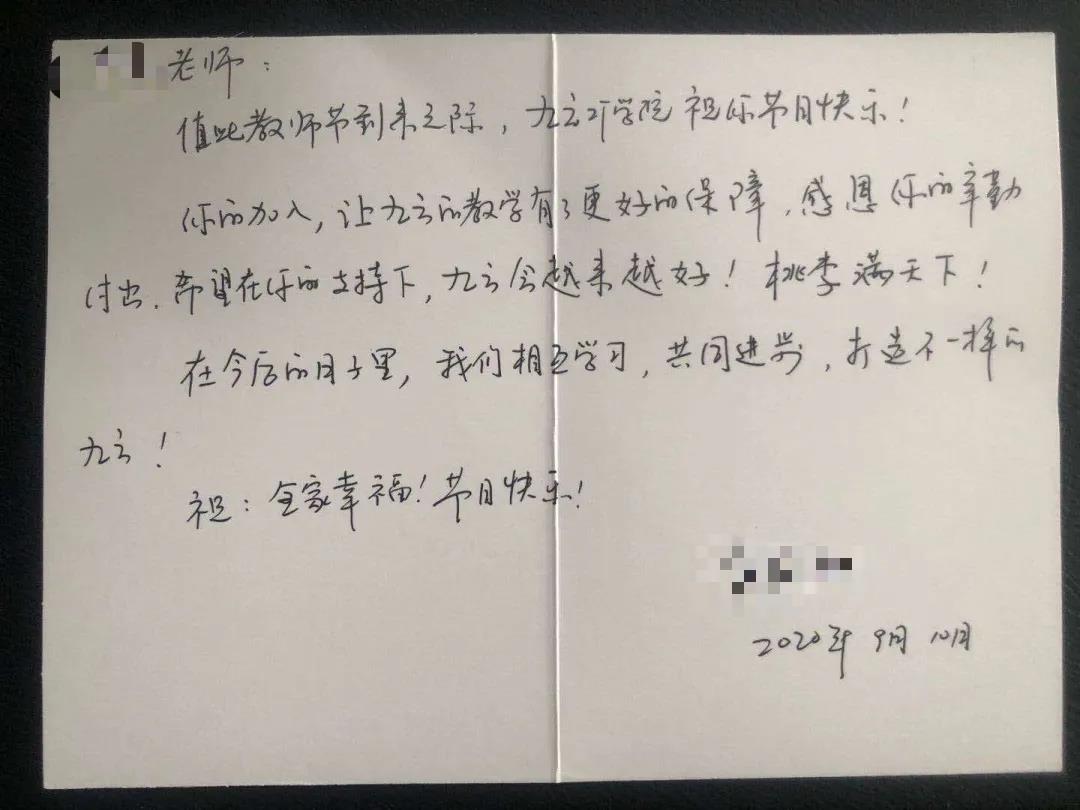 老师：
值此教师节到来之际，九言可学院祝你节日快乐！
你的加入，让九言的教学有了更好的保障，感恩你的辛勤
付出．希望在你的支持下，九言会越来越好！桃李满天下！
在今后的日子里，我们相互学习，共同进步，打造不一样的
九言！
祝：全家幸福！节日快乐！
2020年9月10日